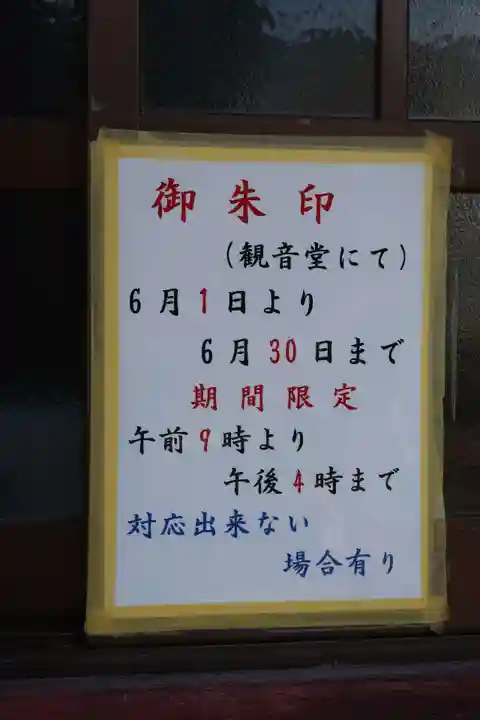 御朱印
（観音堂にて）
6月1日より
6月30日まで
期間限定
午前9時より
午後4時まで
対応出来ない
場合有り